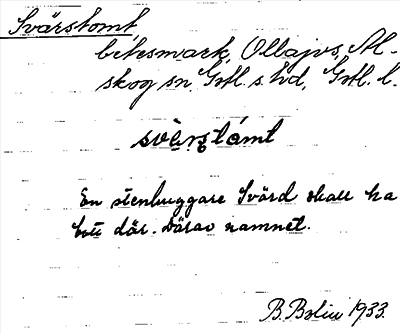 Svärstomt
betesmark, Ollajvs, Al-
skog sn. Gotl. s. hd, Gotl. l.
svärstomt
En stenhuggare Svärd skall ha
bott där. Därav namnet.
B. Bolin 1933.